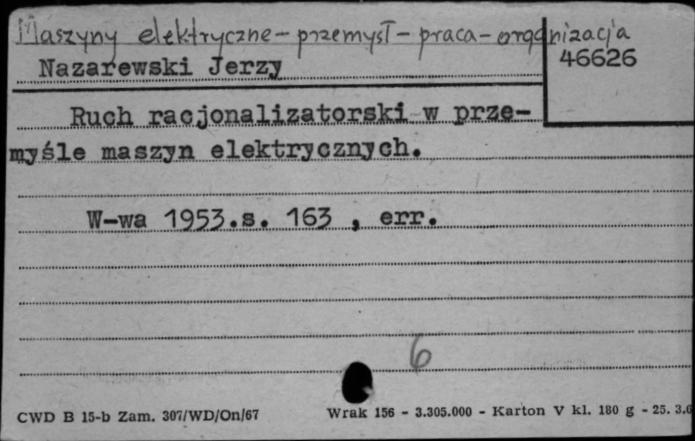 Maszyny elektryczne - przemysł - praca - organizacja
Nazarewski Jerzy
46626
Ruch racjonalizatorski w prze-
myśle maszyn elektrycznych.
W-wa 1953.s. 163 , err.
6
CWD B 15-b Zam. 307/WD/On/67 Wrak 156 - 3.305.000 - Karton V kl. 180 g - 25. 3.6